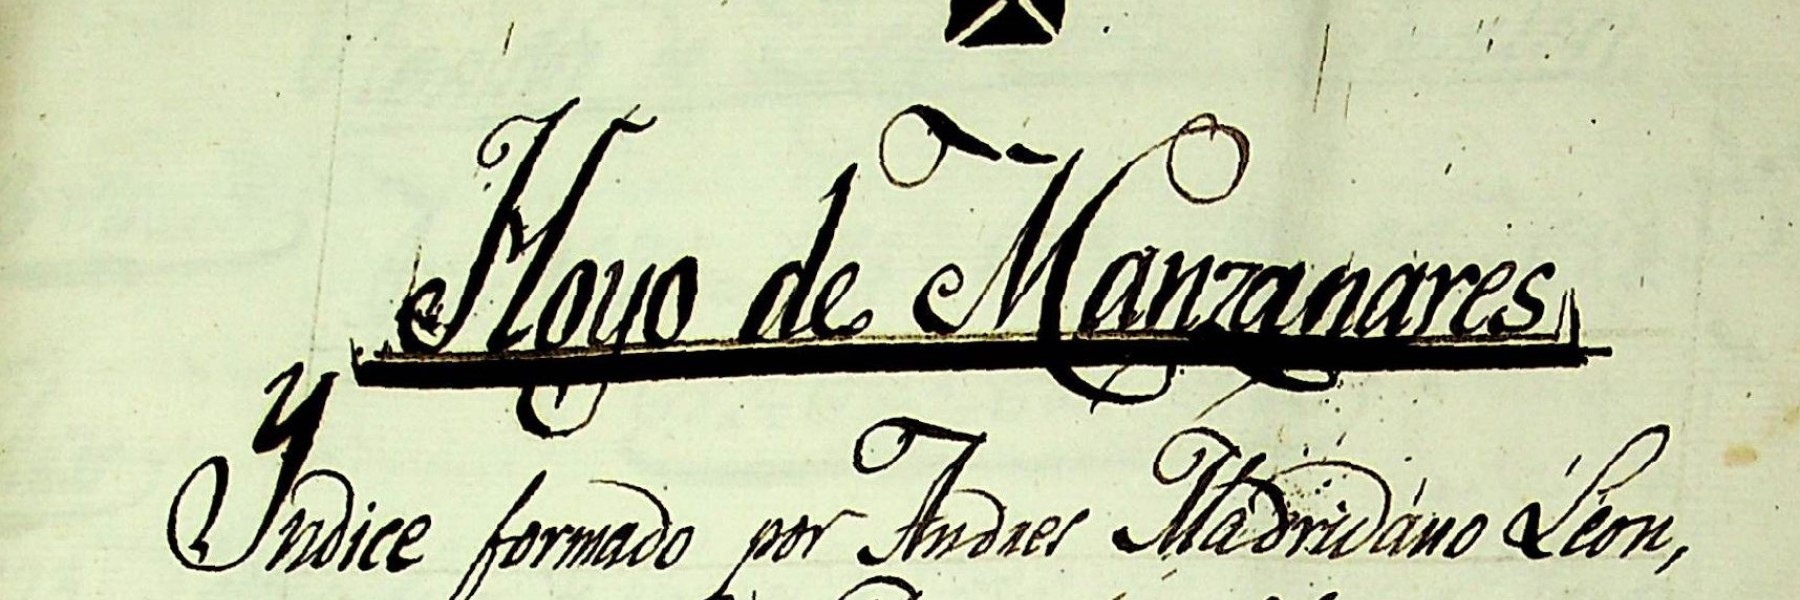 Hoyo de Manzanares
Yndice formado por Andres Madridáno Léon,